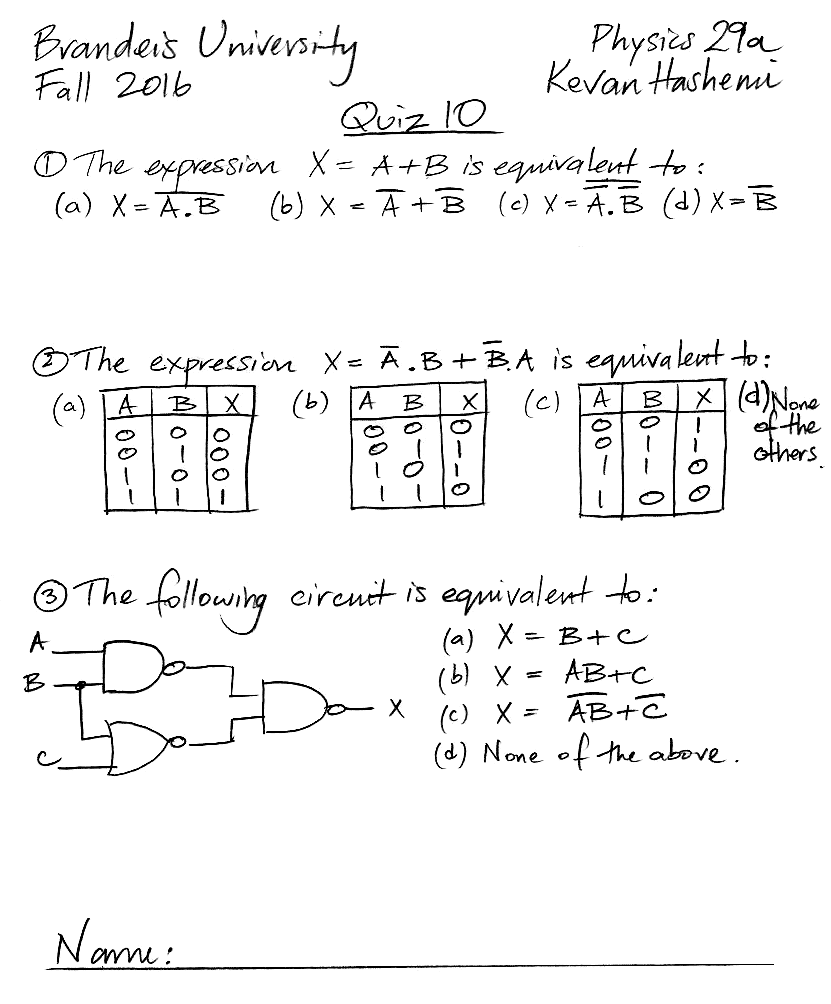 Brandeis University Physics 29a
Fall 2016 Kevan Hashemi
Quiz 10
① The expression X = A+B is equivalent to:
(a) X = A̅.̅B̅ (b) X = A̅ + B̅ (c) X = A̿.̅B̿ (d) X = B̅
② The expression X = A̅.B + B̅.A is equivalent to:
(a) A B X (b) A B X (c) A B X (d) None
0 0 0 0 0 0 0 0 1 of the
0 1 0 0 1 1 0 1 1 others.
1 0 0 1 0 1 1 1 0
1 1 1 1 1 0 1 0 0
③ The following circuit is equivalent to:
A (a) X = B+C
B (b) X = AB+C
X (c) X = A̅B̅+C̅
C (d) None of the above.
Name: